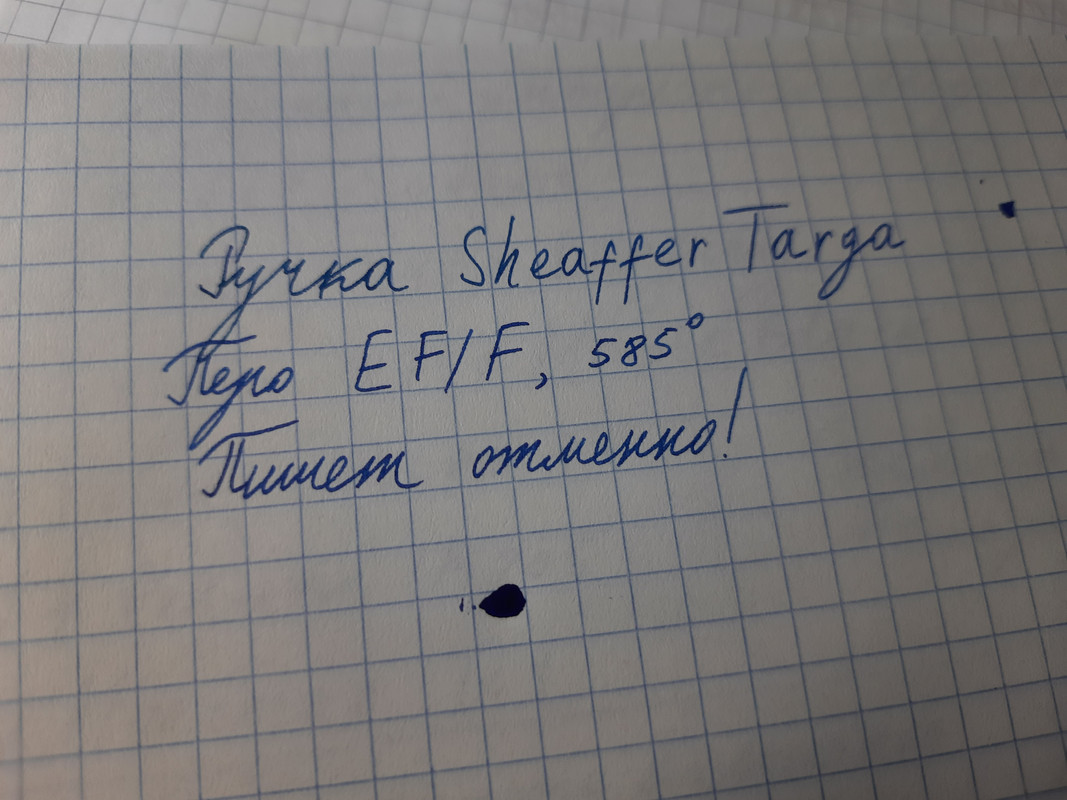 Ручка Sheaffer Targa
Перо EF/F, 585°
Пишет отменно!